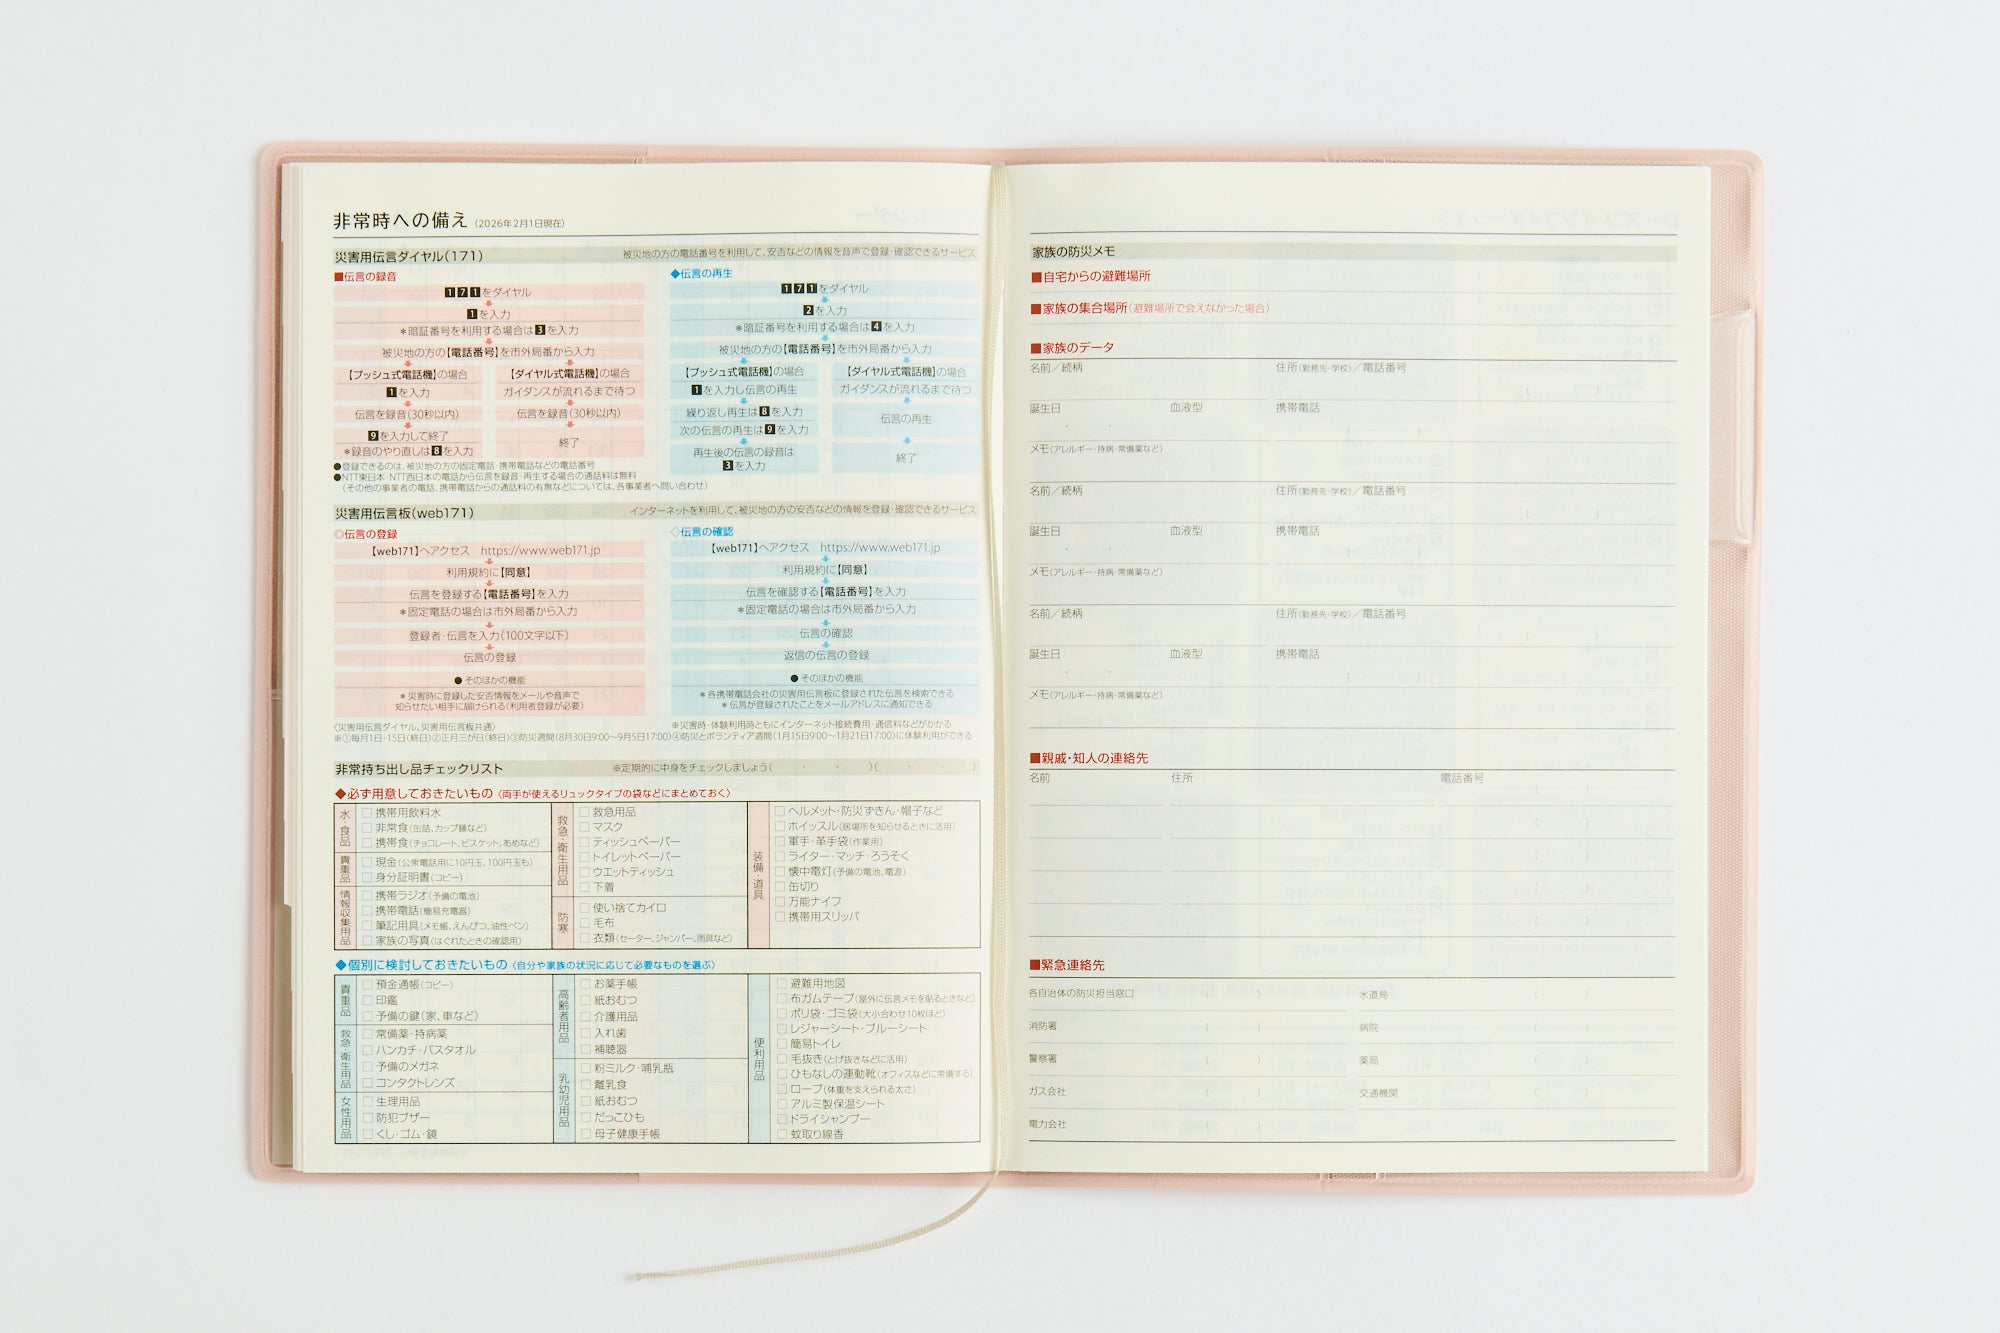 非常時への備え (2026年2月1日現在)
災害用伝言ダイヤル(171) 被災地の方の電話番号を利用して、安否などの情報を音声で登録・確認できるサービス
■伝言の録音
171をダイヤル
1を入力
*暗証番号を利用する場合は3を入力
被災地の方の【電話番号】を市外局番から入力
【プッシュ式電話機】の場合
1を入力
伝言を録音(30秒以内)
9を入力して終了
*録音のやり直しは8を入力
【ダイヤル式電話機】の場合
ガイダンスが流れるまで待つ
伝言を録音(30秒以内)
終了
◆伝言の再生
171をダイヤル
2を入力
*暗証番号を利用する場合は4を入力
被災地の方の【電話番号】を市外局番から入力
【プッシュ式電話機】の場合
1を入力し伝言の再生
繰り返し再生は8を入力
次の伝言の再生は9を入力
再生後の伝言の録音は
3を入力
【ダイヤル式電話機】の場合
ガイダンスが流れるまで待つ
伝言の再生
終了
●登録できるのは、被災地の方の固定電話・携帯電話などの電話番号
●NTT東日本・NTT西日本の電話から伝言を録音・再生する場合の通話料は無料
(その他の事業者の電話、携帯電話からの通話料の有無などについては、各事業者へ問い合わせ)
災害用伝言板(web171) インターネットを利用して、被災地の方の安否などの情報を登録・確認できるサービス
◎伝言の登録
【web171】へアクセス https://www.web171.jp
利用規約に【同意】
伝言を登録する【電話番号】を入力
*固定電話の場合は市外局番から入力
登録者・伝言を入力(100文字以下)
伝言の登録
●そのほかの機能
*災害時に登録した安否情報をメールや音声で
知らせたい相手に届けられる(利用者登録が必要)
◇伝言の確認
【web171】へアクセス https://www.web171.jp
利用規約に【同意】
伝言を確認する【電話番号】を入力
*固定電話の場合は市外局番から入力
伝言の確認
返信の伝言の登録
●そのほかの機能
*各携帯電話会社の災害用伝言板に登録された伝言を検索できる
*伝言が登録されたことをメールアドレスに通知できる
〈災害用伝言ダイヤル、災害用伝言板共通〉 ※災害時・体験利用時ともにインターネット接続費用・通信料などがかかる
※①毎月1日・15日(終日)②正月三が日(終日)③防災週間(8月30日9:00〜9月5日17:00)④防災とボランティア週間(1月15日9:00〜1月21日17:00)に体験利用ができる
非常持ち出し品チェックリスト ※定期的に中身をチェックしましょう( ・ ・ )( ・ ・ )
◆必ず用意しておきたいもの〈両手が使えるリュックタイプの袋などにまとめておく〉
水・食品
□携帯用飲料水
□非常食(缶詰、カップ麺など)
□携帯食(チョコレート、ビスケット、あめなど)
貴重品
□現金(公衆電話用に10円玉、100円玉も)
□身分証明書(コピー)
情報収集用品
□携帯ラジオ(予備の電池)
□携帯電話(簡易充電器)
□筆記用具(メモ帳、えんぴつ、油性ペン)
□家族の写真(はぐれたときの確認用)
救急・衛生用品
□救急用品
□マスク
□ティッシュペーパー
□トイレットペーパー
□ウエットティッシュ
□下着
防寒
□使い捨てカイロ
□毛布
□衣類(セーター、ジャンパー、雨具など)
装備・道具
□ヘルメット・防災ずきん・帽子など
□ホイッスル(居場所を知らせるときに活用)
□軍手・革手袋(作業用)
□ライター・マッチ・ろうそく
□懐中電灯(予備の電池、電源)
□缶切り
□万能ナイフ
□携帯用スリッパ
◆個別に検討しておきたいもの〈自分や家族の状況に応じて必要なものを選ぶ〉
貴重品
□預金通帳(コピー)
□印鑑
□予備の鍵(家、車など)
救急・衛生用品
□常備薬・持病薬
□ハンカチ・バスタオル
□予備のメガネ
□コンタクトレンズ
女性用品
□生理用品
□防犯ブザー
□くし・ゴム・鏡
高齢者用品
□お薬手帳
□紙おむつ
□介護用品
□入れ歯
□補聴器
乳幼児用品
□粉ミルク・哺乳瓶
□離乳食
□紙おむつ
□だっこひも
□母子健康手帳
便利用品
□避難用地図
□布ガムテープ(屋外に伝言メモを貼るときなど)
□ポリ袋・ゴミ袋(大小合わせ10枚ほど)
□レジャーシート・ブルーシート
□簡易トイレ
□毛抜き(とげ抜きなどに活用)
□ひもなしの運動靴(オフィスなどに常備する)
□ロープ(体重を支えられる太さ)
□アルミ製保温シート
□ドライシャンプー
□蚊取り線香
家族の防災メモ
■自宅からの避難場所
■家族の集合場所(避難場所で会えなかった場合)
■家族のデータ
名前/続柄 住所(勤務先・学校)/電話番号
( )
誕生日 血液型 携帯電話
・ ・ ( )
メモ(アレルギー・持病・常備薬など)
名前/続柄 住所(勤務先・学校)/電話番号
( )
誕生日 血液型 携帯電話
・ ・ ( )
メモ(アレルギー・持病・常備薬など)
名前/続柄 住所(勤務先・学校)/電話番号
( )
誕生日 血液型 携帯電話
・ ・ ( )
メモ(アレルギー・持病・常備薬など)
■親戚・知人の連絡先
名前 住所 電話番号
( )
( )
( )
( )
( )
■緊急連絡先
各自治体の防災担当窓口 ( ) 水道局 ( )
消防署 ( ) 病院 ( )
警察署 ( ) 薬局 ( )
ガス会社 ( ) 交通機関 ( )
電力会社 ( )